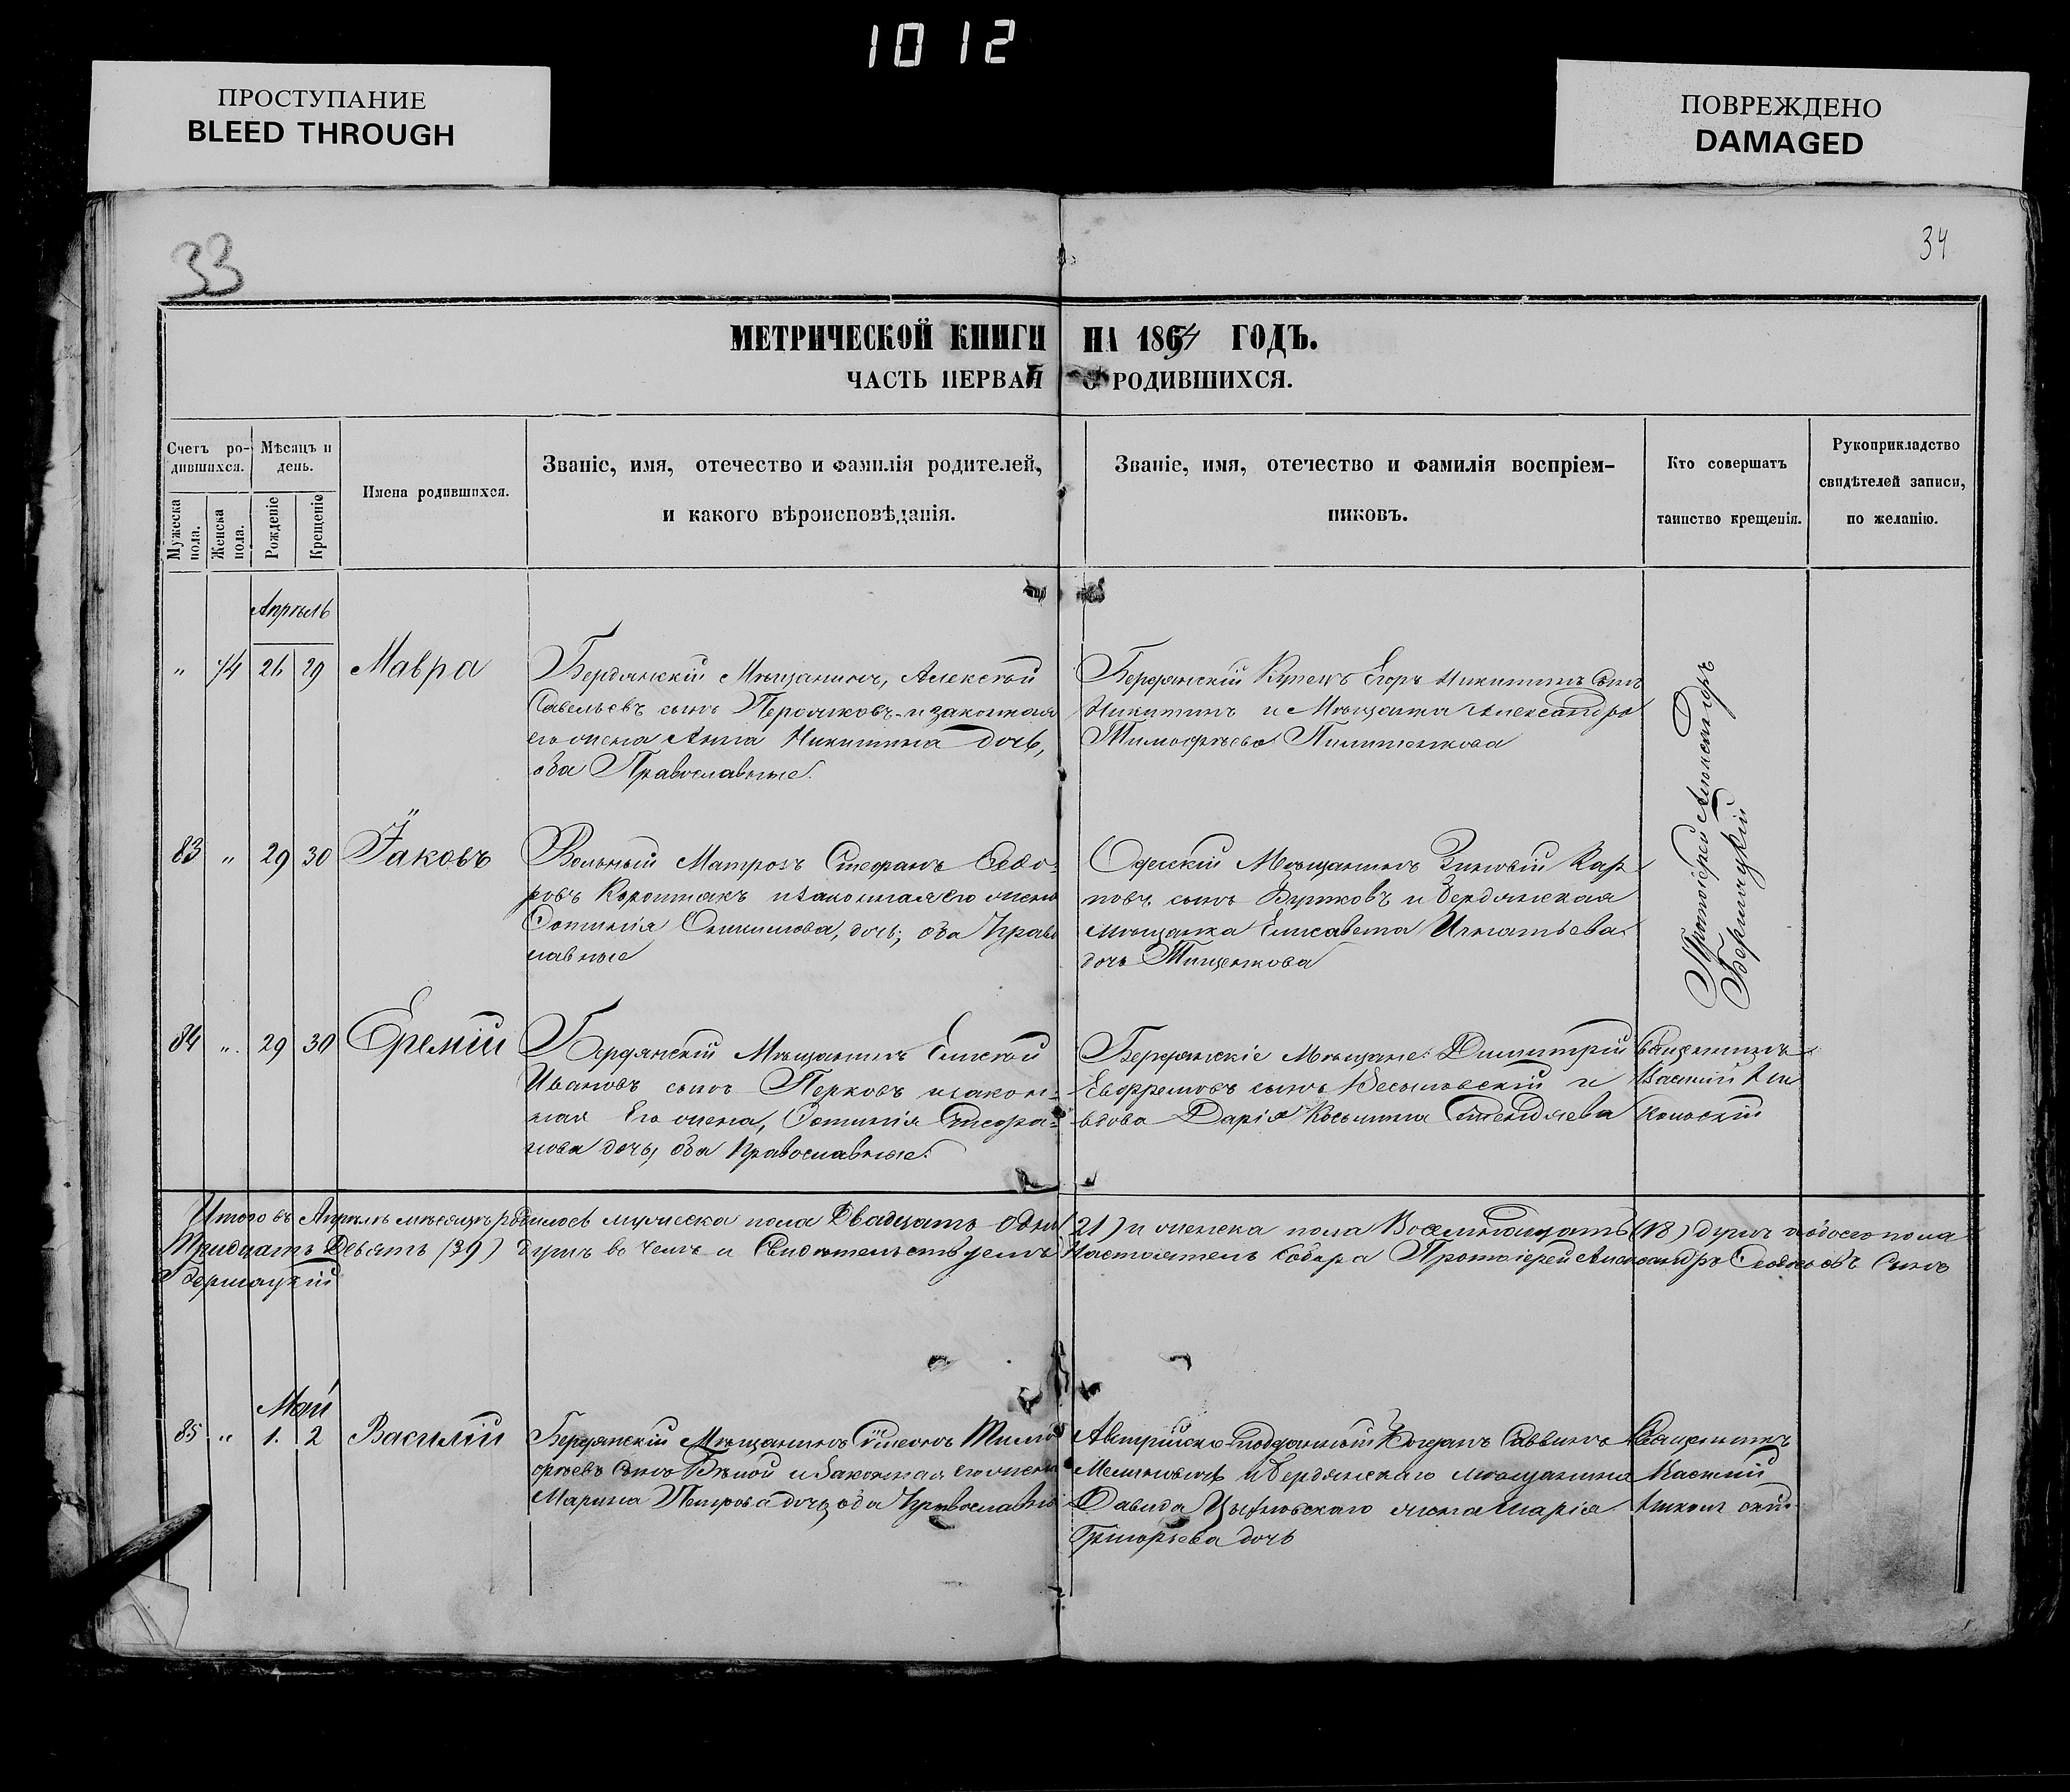 1012
ПРОСТУПАНИЕ
BLEED THROUGH
ПОВРЕЖДЕНО
DAMAGED
33
34
МЕТРИЧЕСКОЙ КНИГИ НА 1864 ГОДЪ.
ЧАСТЬ ПЕРВАЯ О РОДИВШИХСЯ.
Счетъ ро-
дившихся.
Мужеска
пола.
Женска
пола.
Мѣсяцъ и
день.
Рожденіе
Крещеніе
Имена родившихся.
Званіе, имя, отечество и фамилія родителей,
и какого вѣроисповѣданія.
Званіе, имя, отечество и фамилія воспріем-
никовъ.
Кто совершатъ
таинство крещенія.
Рукоприкладство
свидѣтелей записи,
по желанію.
Апрѣль
" 74 26 29 Мавра
Бердянскій Мѣщанинъ, Алексѣй
Савельевъ сынъ и законная
его жена Анна Никитина дочь,
оба Православные.
Бердянскій Купецъ Егоръ Никитинъ Сынъ
Никитинъ и Мѣщанка Александра
Тимофѣева
Протоіерей Александръ
83 " 29 30 Іаковъ
Вольный Матросъ Стефанъ Ѳедо-
ровъ и законная его жена
Фотинія дочь, оба Право
славные
Одесскій Мѣщанинъ Зиновій Кар
повъ сынъ и Бердянская
мѣщанка Елисавета Игнатьева
дочь Тищенкова
84 " 29 30 Еремій
Бердянскій Мѣщанинъ Елисей
Ивановъ сынъ Перковъ и закон-
ная его жена, Фотинія Стефа-
нова дочь, оба Православные.
Бердянскіе Мѣщане: Димитрій
Евфремовъ сынъ и
вдова Дарія Косьмина
Священникъ
Василій
Итого въ Апрѣлѣ мѣсяцѣ родилось мужеска пола Двадцать Одна (21) и женска пола Восемнадцать (18) душъ а обоего пола
Тридцать Девять (39) душъ во чемъ и Свидѣтельствуемъ Настоятель Собора Протоіерей Александръ сынъ
Май
85 " 1. 2 Василій
Бердянскій Мѣщанинъ Сѵмеонъ Тимо
фѣевъ Сынъ Бѣлой и Законная его жена
Марина Петрова дочь оба Православны
Австрійско подданный Богданъ Саввинъ
и Бердянскаго мѣщанина
Давида жена Марія
Григорьева дочь
Священникъ
Василій